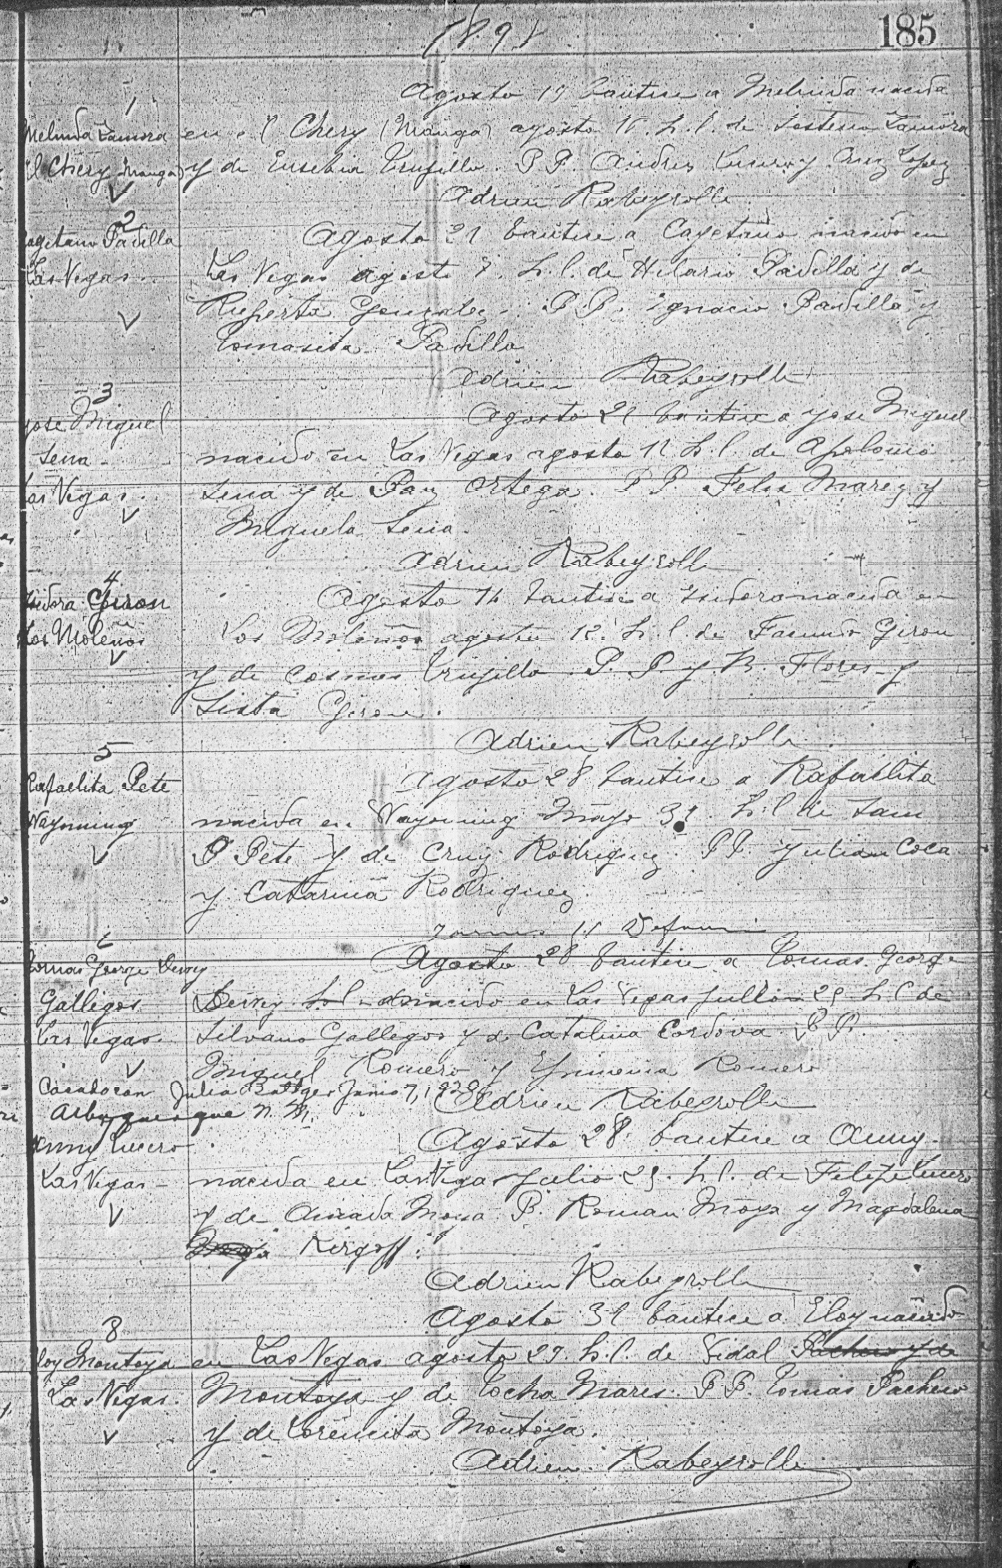 185
1898
1
Melinda Zamora
El Chery Manga
Agosto 19 bautice a Melinda nacida
en el Chery (Manga) agosto 16. h. l. de Sosteno Zamora
y de Eusebia Trujillo. P P. Andres Lucero y Cruz Lopez
Adrien Rabeyrolle
2
Cayetano Padilla
Las Vegas.
Agosto 21 bautice a Cayetano nacido en
Las Vegas agosto 7. h. l. de Hilario Padilla y de
Ruperta Gonzales. P P. Ignacio Padilla y
Tomasita Padilla
Adrien Rabeyrolle
3
Jose Miguel
Sena
Las Vegas.
Agosto 21 bautice a Jose Miguel
nacido en Las Vegas agosto 11 h. l. de Apolonio
Sena y de Paz Ortega. P P. Felix Mares y
Miguela Sena.
Adrien Rabeyrolle
4
Isidora Giron
Los Moleños
Agosto 14 bautice a Isidora nacida en
Los Moleños agosto 12. h. l. de Facundo Giron
y de Cosmes Trujillo P P y B. Flores y
Sista Giron.
Adrien Rabeyrolle
5
Rafaelita Pete
Wayoming
Agosto 28 bautice a Rafaelita
nacida en Wayoming Mayo 31. h. l. de Sam
P Pete y de Cruz Rodriguez. P P. Julian Coca
y Catarina Rodriguez
6
Tomas George Dewey
Gallegos
Las Vegas.
Agosto 28 bautice a Tomas George
Dewey nacido en Las Vegas Jullio 25 h. l. de
Silvano Gallegos y de Catalina Cordova. P P.
Miguel Romero y Ymenia Romero
Casado con Julia Bottger Junio 7, 1928
Albuquerque N. M.
Adrien Rabeyrolle
Anny Lucero
Las Vegas
Agosto 28. bautice a Anny.
nacida en Las Vegas Julio 25. h. l. de Felipe Lucero
y de Amada Moya P. Roman Moya y Magdalena
Kirgoff.
Adrien Rabeyrolle
8
Eloy Montoya
Las Vegas.
Agosto 31 bautice a Eloy nacido
en Las Vegas agosto 27 h. l. de Vidal Pacheco y de
Montoya y de Tocha Mares. P P. Tomas Pacheco
y de Lorencita Montoya.
Adrien Rabeyrolle